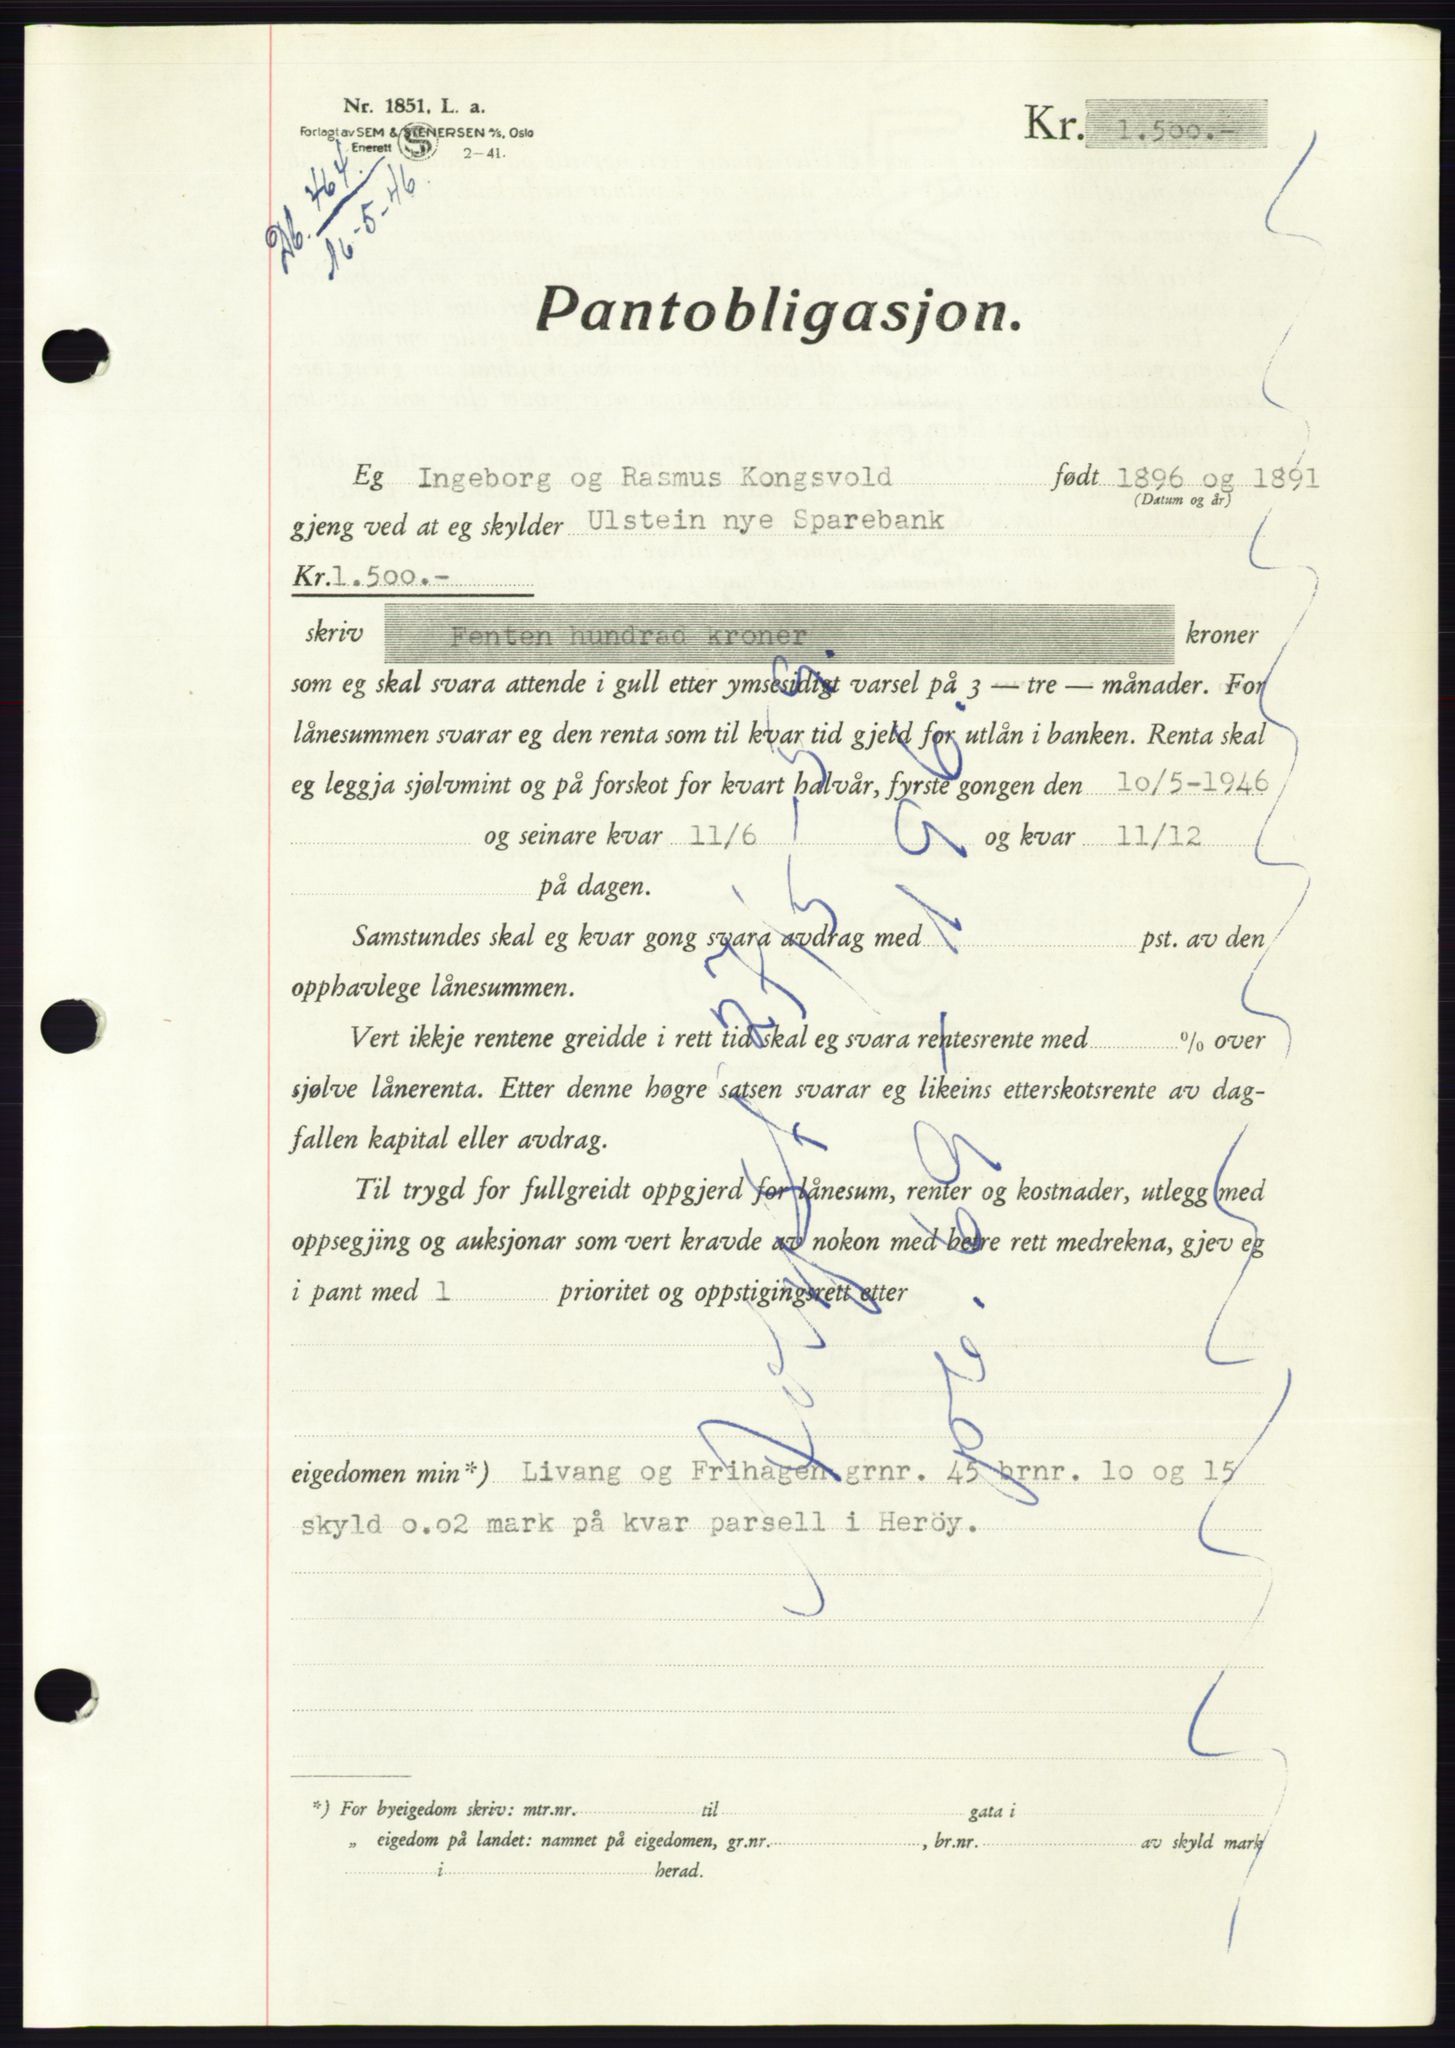 Nr. 1851, L. a.
Forlagt av SEM & STENERSEN A/S, Oslo
Enerett
2—41.
Kr. 1.500.-
Db. 464.
16-5-46.
Pantobligasjon.
Eg Ingeborg og Rasmus Kongsvold født 1896 og 1891
(Datum og år)
gjeng ved at eg skylder Ulstein nye Sparebank
Kr.1.500.-
skriv Femten hundrad kroner kroner
som eg skal svara attende i gull etter ymsesidigt varsel på 3 — tre — månader. For
lånesummen svarar eg den renta som til kvar tid gjeld for utlån i banken. Renta skal
eg leggja sjølvmint og på forskot for kvart halvår, fyrste gongen den 10/5-1946
og seinare kvar 11/6 og kvar 11/12
på dagen.
Samstundes skal eg kvar gong svara avdrag med pst. av den
opphavlege lånesummen.
Vert ikkje rentene greidde i rett tid skal eg svara rentesrente med % over
sjølve lånerenta. Etter denne høgre satsen svarar eg likeins etterskotsrente av dag-
fallen kapital eller avdrag.
Til trygd for fullgreidt oppgjerd for lånesum, renter og kostnader, utlegg med
oppsegjing og auksjonar som vert kravde av nokon med betre rett medrekna, gjev eg
i pant med 1 prioritet og oppstigingsrett etter
eigedomen min*) Livang og Frihagen grnr. 45 brnr. 10 og 15
skyld 0.02 mark på kvar parsell i Heröy.
*) For byeigedom skriv: mtr.nr. til gata i
„ eigedom på landet: namnet på eigedomen, gr.nr. , br.nr. av skyld mark
i herad.